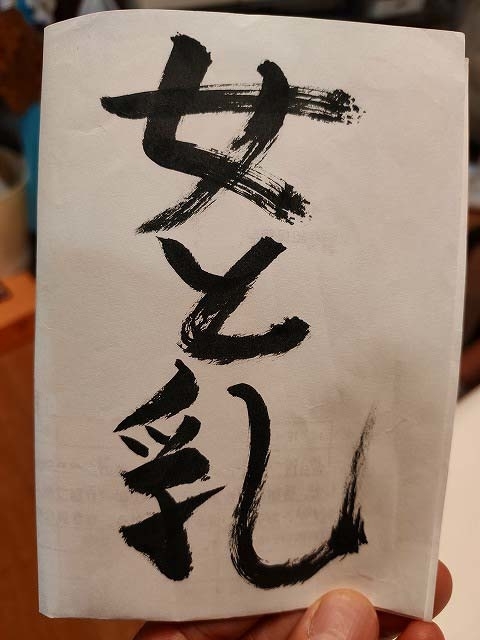 女と乳